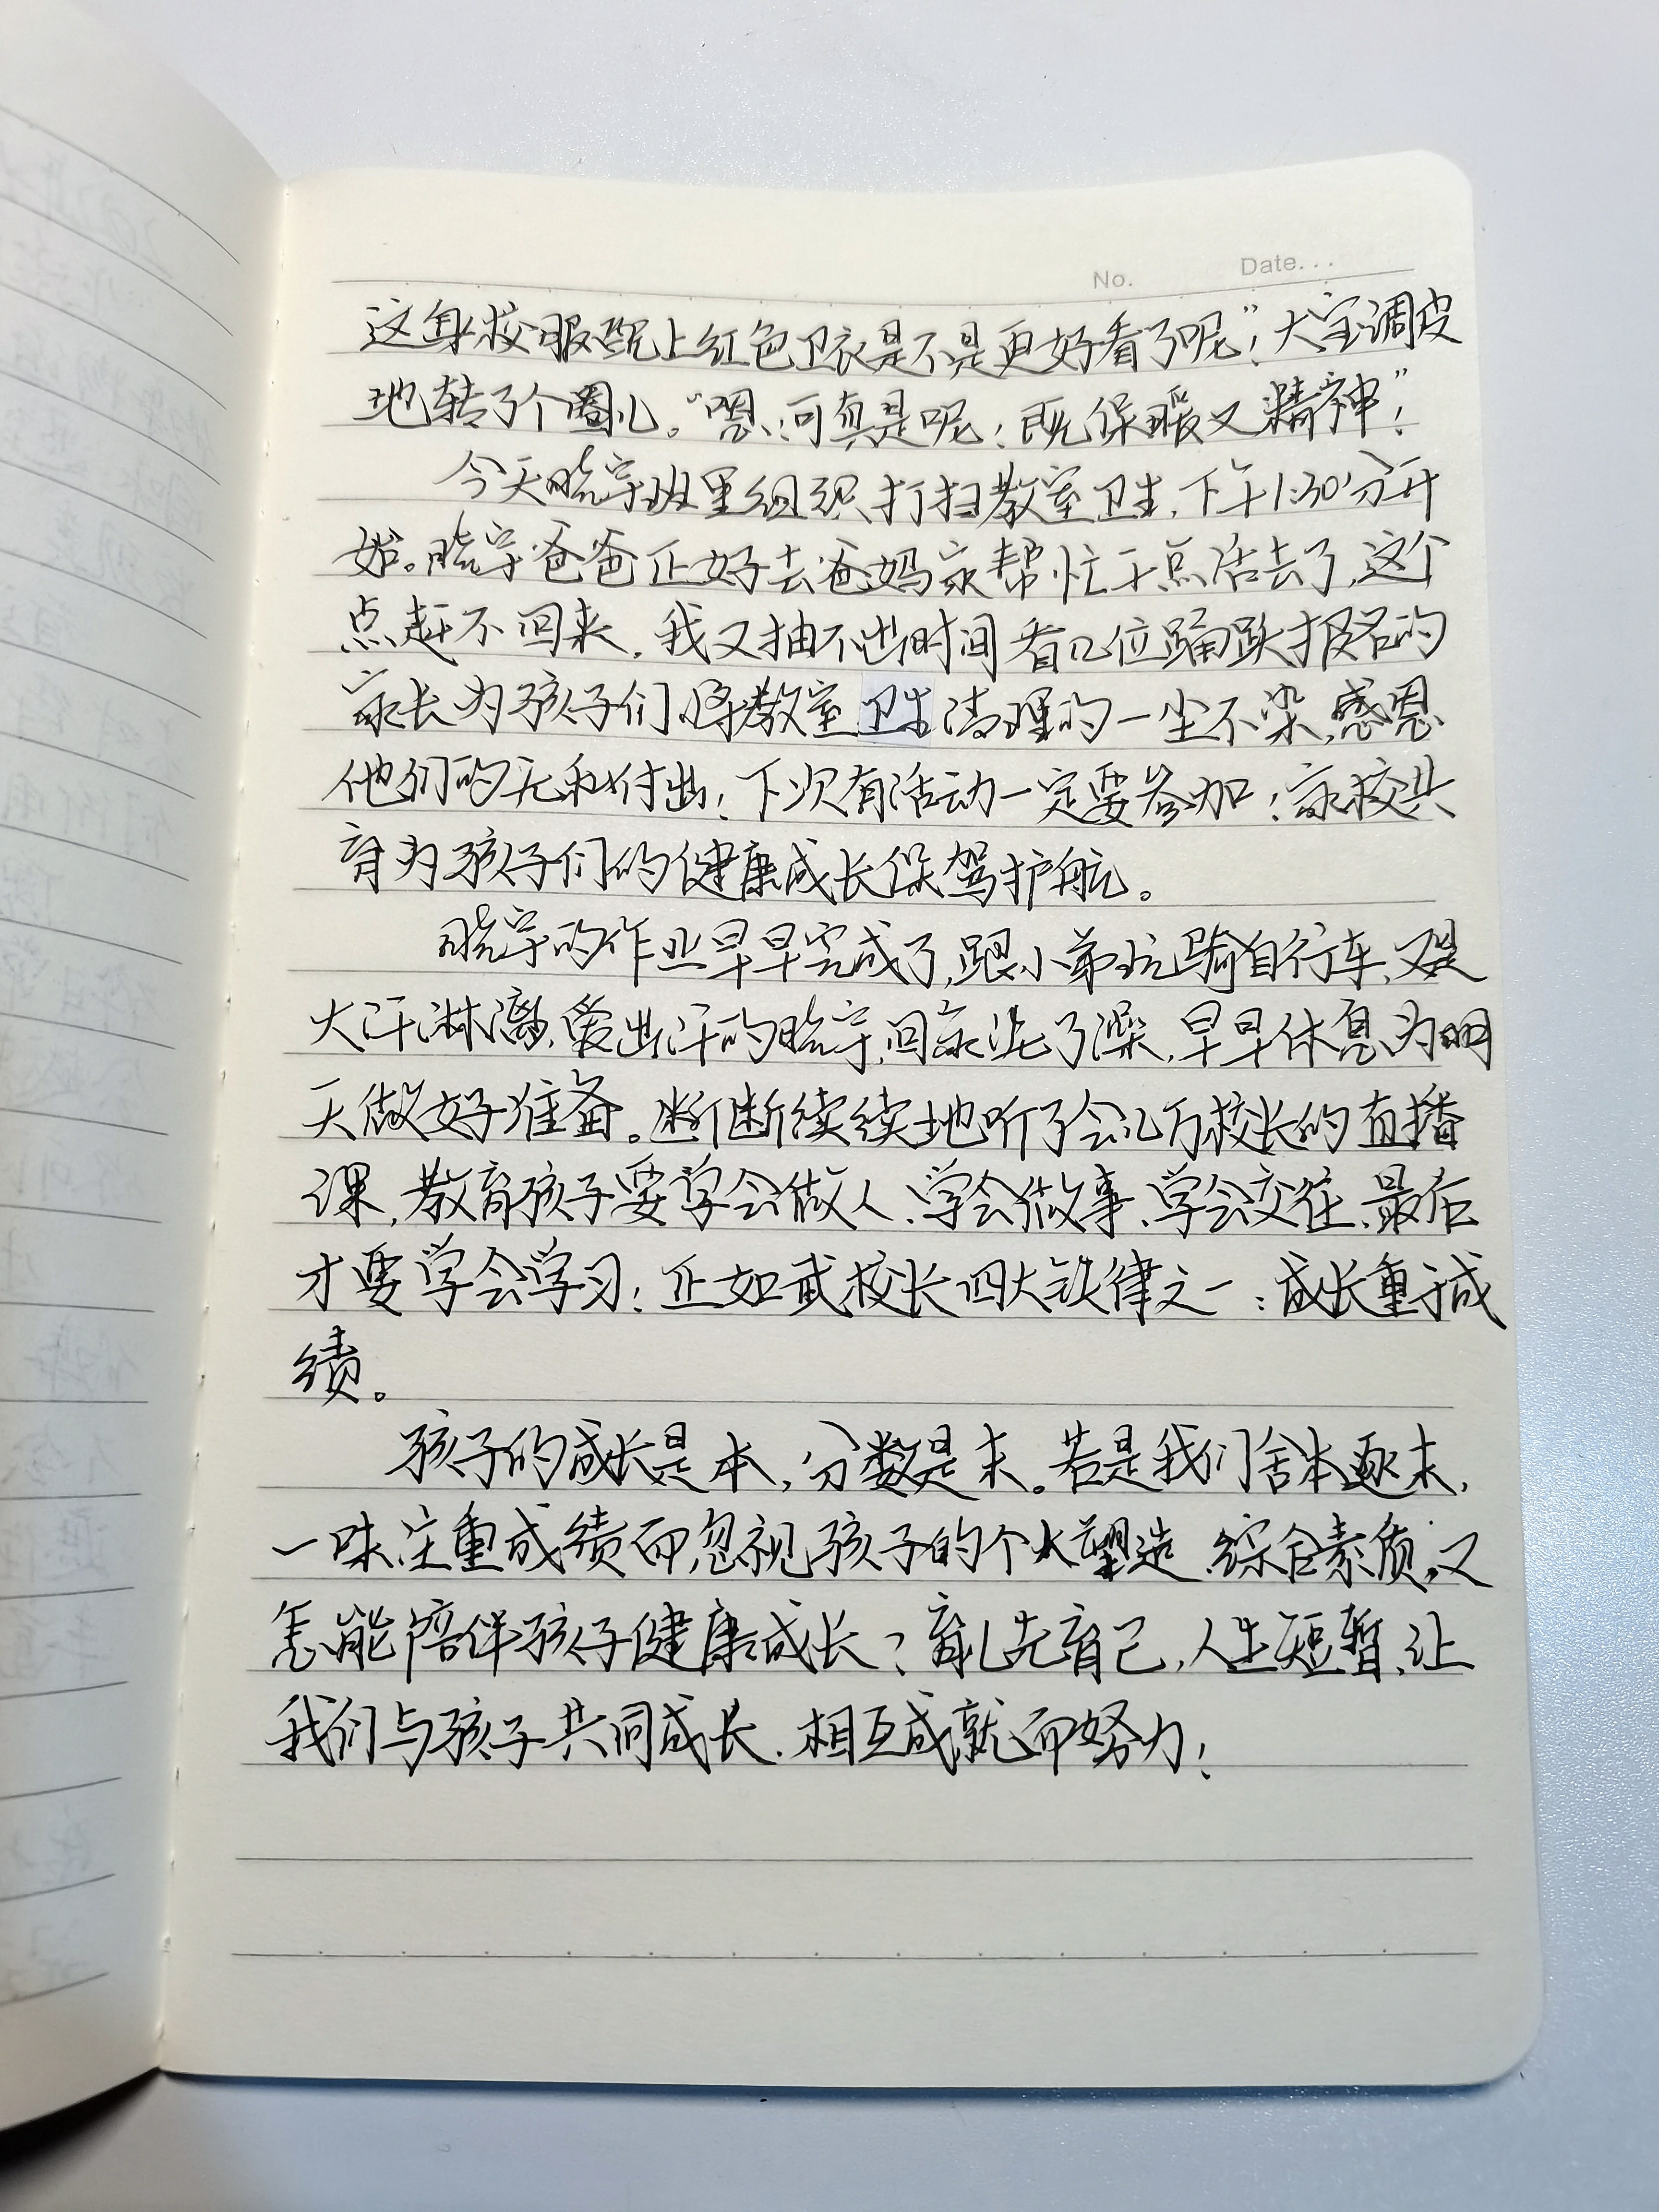 No. Date...
这身校服配上红色卫衣是不是更好看了呢"！大宝调皮
地转了个圈儿。"嗯，可真是呢！既保暖又精神"！
今天晓宇班里组织打扫教室卫生，下午1:30分开
始。晓宇爸爸正好去爸妈家帮忙干点活去了，这个
点赶不回来，我又抽不出时间看几位踊跃报名的
家长为孩子们将教室卫生清理的一尘不染，感恩
他们的无私付出！下次有活动一定要参加！家校共
育为孩子们的健康成长保驾护航。
晓宇的作业早早完成了，跟小弟玩骑自行车，又是
大汗淋漓，爱出汗的晓宇，回家洗了澡，早早休息为明
天做好准备。断断续续地听了会儿万校长的直播
课，教育孩子要学会做人、学会做事、学会交往、最后
才要学会学习！正如武校长四大铁律之一：成长重于成
绩。
孩子的成长是本，分数是末。若是我们舍本逐末，
一味注重成绩而忽视孩子的个人塑造、综合素质，又
怎能陪伴孩子健康成长？育儿先育己，人生短暂，让
我们与孩子共同成长、相互成就而努力！